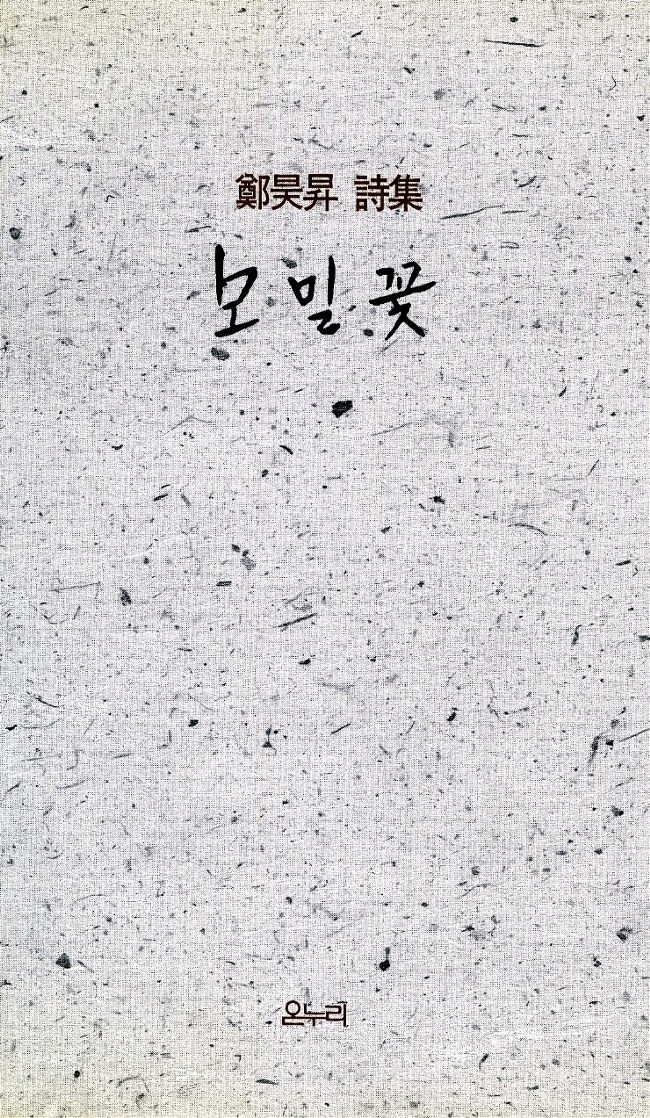 鄭昊昇 詩集
모밀꽃
온누리